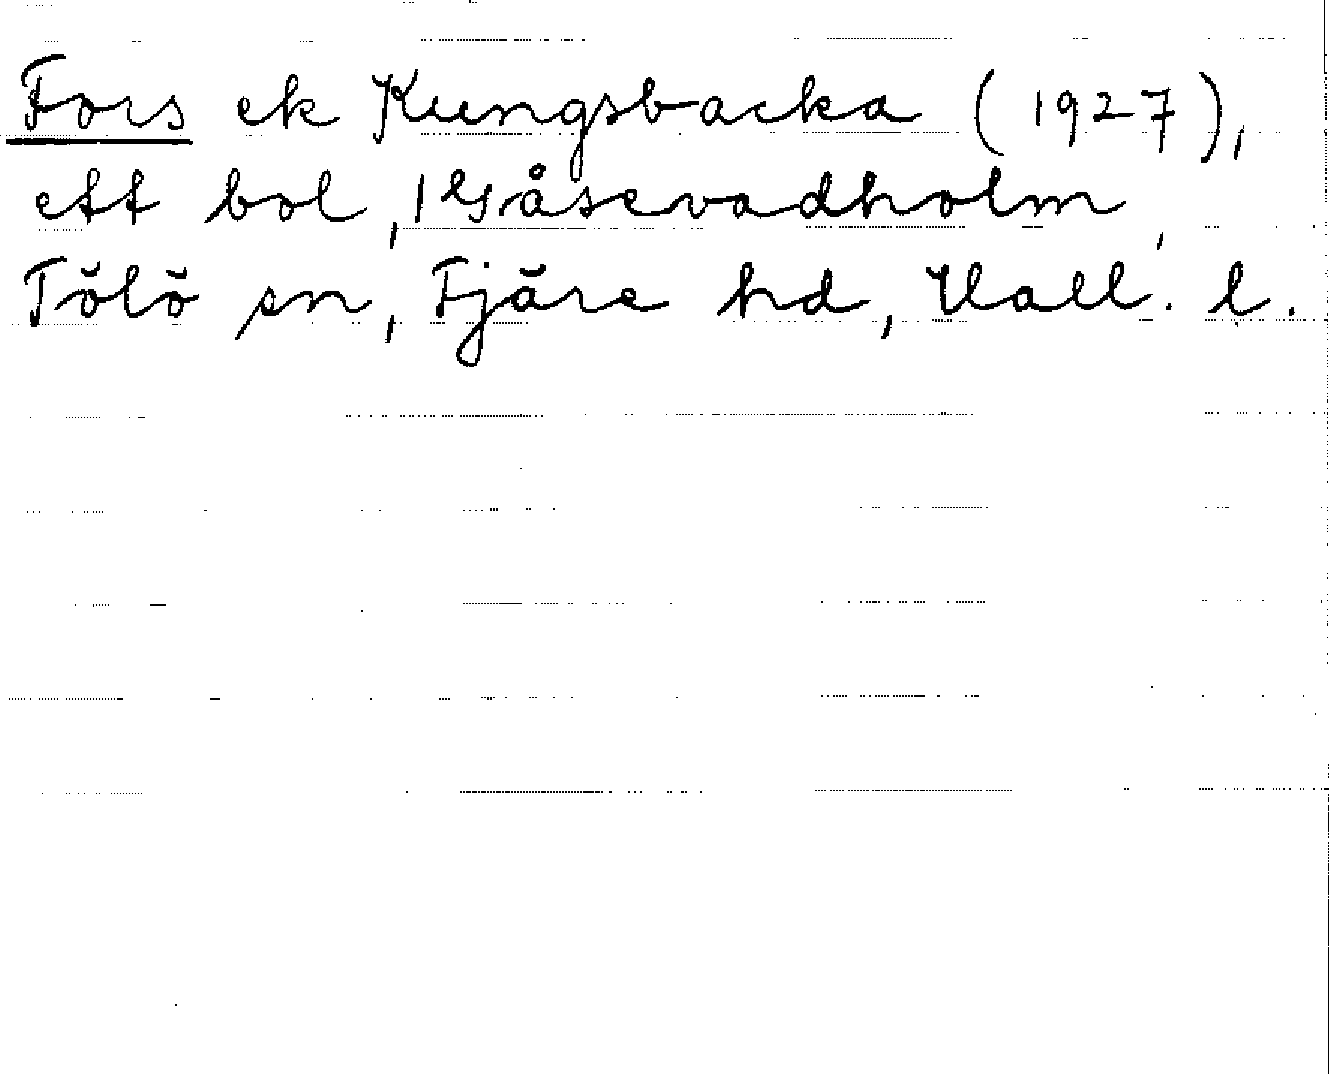 Fors ek Kungsbacka (1927),
ett bol, 1 Gåsevadholm,
Tölö sn, Fjäre hd, Hall. l.